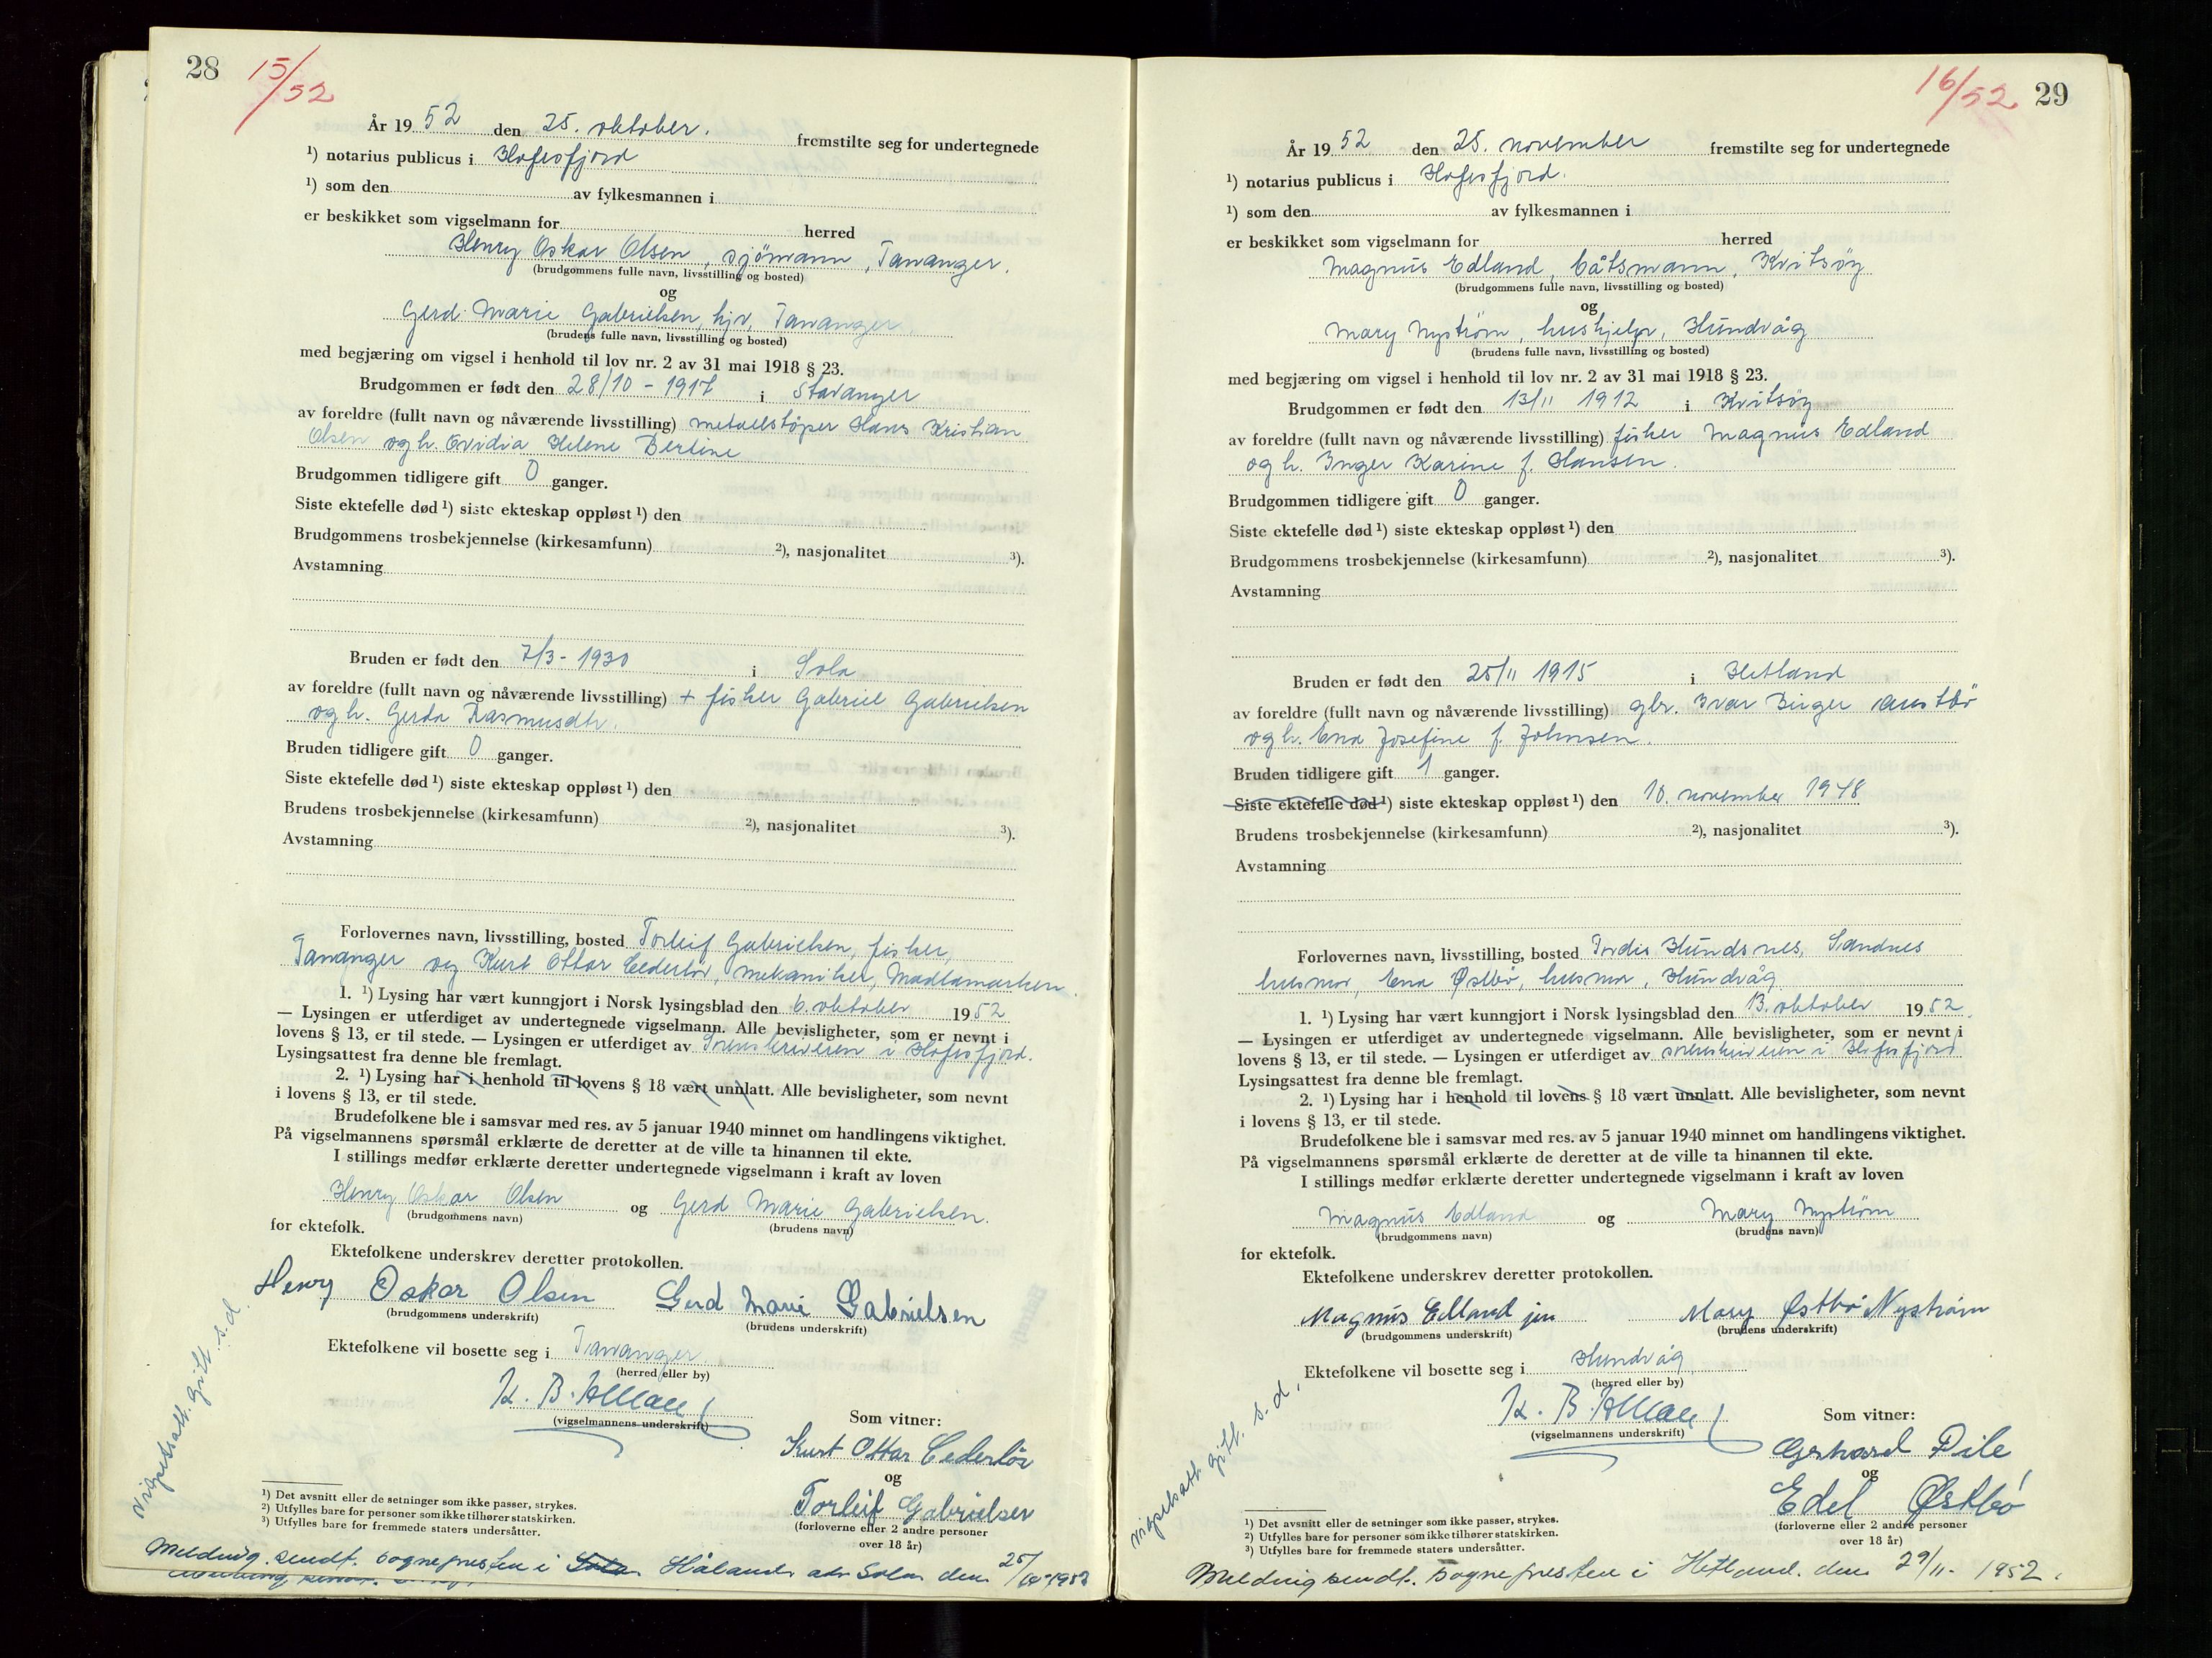 28 15/52
År 19 52 den 25. oktober. fremstilte seg for undertegnede
¹) notarius publicus i Hafrsfjord
¹) som den av fylkesmannen i
er beskikket som vigselmann for herred
Henry Oskar Olsen, sjömann, Tananger.
(brudgommens fulle navn, livsstilling og bosted)
og
Gerd Marie Gabrielsen, hjv, Tananger.
(brudens fulle navn, livsstilling og bosted)
med begjæring om vigsel i henhold til lov nr. 2 av 31 mai 1918 § 23.
Brudgommen er født den 28/10 - 1917 i Stavanger
av foreldre (fullt navn og nåværende livsstilling) metallstöper Hans Kristian
Olsen og h. Ovidia Helene Bertine
Brudgommen tidligere gift 0 ganger.
Siste ektefelle død ¹) siste ekteskap oppløst ¹) den
Brudgommens trosbekjennelse (kirkesamfunn) ²), nasjonalitet ³).
Avstamning
Bruden er født den 7/3 - 1930 i Sola
av foreldre (fullt navn og nåværende livsstilling) + fisker Gabriel Gabrielsen
og h. Gerda Rasmusdtr.
Bruden tidligere gift 0 ganger.
Siste ektefelle død ¹) siste ekteskap oppløst ¹) den
Brudens trosbekjennelse (kirkesamfunn) ²), nasjonalitet ³).
Avstamning
Forlovernes navn, livsstilling, bosted Torleif Gabrielsen, fisker,
Tananger og Kurt Ottar Cederlöv, mekaniker, Madlamarken.
1. ¹) Lysing har vært kunngjort i Norsk lysingsblad den 6. oktober 1952
— Lysingen er utferdiget av undertegnede vigselmann. Alle bevisligheter, som er nevnt i
lovens § 13, er til stede. — Lysingen er utferdiget av Sorenskriveren i Hafrsfjord.
Lysingsattest fra denne ble fremlagt.
2. ¹) Lysing har i henhold til lovens § 18 vært unnlatt. Alle bevisligheter, som nevnt
i lovens § 13, er til stede.
Brudefolkene ble i samsvar med res. av 5 januar 1940 minnet om handlingens viktighet.
På vigselmannens spørsmål erklærte de deretter at de ville ta hinannen til ekte.
I stillings medfør erklærte deretter undertegnede vigselmann i kraft av loven
Henry Oskar Olsen og Gerd Marie Gabrielsen.
(brudgommens navn) (brudens navn)
for ektefolk.
Ektefolkene underskrev deretter protokollen.
Henry Oskar Olsen Gerd Marie Gabrielsen
(brudgommens underskrift) (brudens underskrift)
Ektefolkene vil bosette seg i Tananger
(herred eller by)
K. B.
(vigselmannens underskrift)
Som vitner:
Kurt Ottar Cederlöv
og
Torleif Gabrielsen
(forloverne eller 2 andre personer
over 18 år)
vigselsatt. gitt. s. d.
¹) Det avsnitt eller de setninger som ikke passer, strykes.
²) Utfylles bare for personer som ikke tilhører statskirken.
³) Utfylles bare for fremmede staters undersåtter.
Melding sendt. sognepresten i Sola Håland adr Sola den 25/10-1952
16/52 29
År 19 52 den 25. november fremstilte seg for undertegnede
¹) notarius publicus i Hafrsfjord.
¹) som den av fylkesmannen i
er beskikket som vigselmann for herred
Magnus Edland, båtsmann, Kvitsöy
(brudgommens fulle navn, livsstilling og bosted)
og
Mary Nystrøm, hushjelp, Hundvåg
(brudens fulle navn, livsstilling og bosted)
med begjæring om vigsel i henhold til lov nr. 2 av 31 mai 1918 § 23.
Brudgommen er født den 13/11 1912 i Kvitsöy
av foreldre (fullt navn og nåværende livsstilling) fisker Magnus Edland
og h. Inger Karine f. Hansen.
Brudgommen tidligere gift 0 ganger.
Siste ektefelle død ¹) siste ekteskap oppløst ¹) den
Brudgommens trosbekjennelse (kirkesamfunn) ²), nasjonalitet ³).
Avstamning
Bruden er født den 25/11 1915 i Hetland
av foreldre (fullt navn og nåværende livsstilling) gbr. Ivar Birger Austbö
og h. Ena Josefine f. Johnsen.
Bruden tidligere gift 1 ganger.
Siste ektefelle død ¹) siste ekteskap oppløst ¹) den 10. november 1948
Brudens trosbekjennelse (kirkesamfunn) ²), nasjonalitet ³).
Avstamning
Forlovernes navn, livsstilling, bosted Tordis Hundsnes, Sandnes
husmor, Ena Østbö, husmor, Hundvåg
1. ¹) Lysing har vært kunngjort i Norsk lysingsblad den 13. oktober 1952.
— Lysingen er utferdiget av undertegnede vigselmann. Alle bevisligheter, som er nevnt i
lovens § 13, er til stede. — Lysingen er utferdiget av sorenskriveren i Hafrsfjord
Lysingsattest fra denne ble fremlagt.
2. ¹) Lysing har i henhold til lovens § 18 vært unnlatt. Alle bevisligheter, som nevnt
i lovens § 13, er til stede.
Brudefolkene ble i samsvar med res. av 5 januar 1940 minnet om handlingens viktighet.
På vigselmannens spørsmål erklærte de deretter at de ville ta hinannen til ekte.
I stillings medfør erklærte deretter undertegnede vigselmann i kraft av loven
Magnus Edland og Mary Nystrøm
(brudgommens navn) (brudens navn)
for ektefolk.
Ektefolkene underskrev deretter protokollen.
Magnus Edland jun Mary Østbö Nystrøm
(brudgommens underskrift) (brudens underskrift)
Ektefolkene vil bosette seg i Hundvåg
(herred eller by)
K. B.
(vigselmannens underskrift)
Som vitner:
Gerhard
og
Edel Østbö
(forloverne eller 2 andre personer
over 18 år)
vigselsatt. gitt. s. d.
¹) Det avsnitt eller de setninger som ikke passer, strykes.
²) Utfylles bare for personer som ikke tilhører statskirken.
³) Utfylles bare for fremmede staters undersåtter.
Melding sendt. sognepresten i Hetland. den 29/11- 1952.